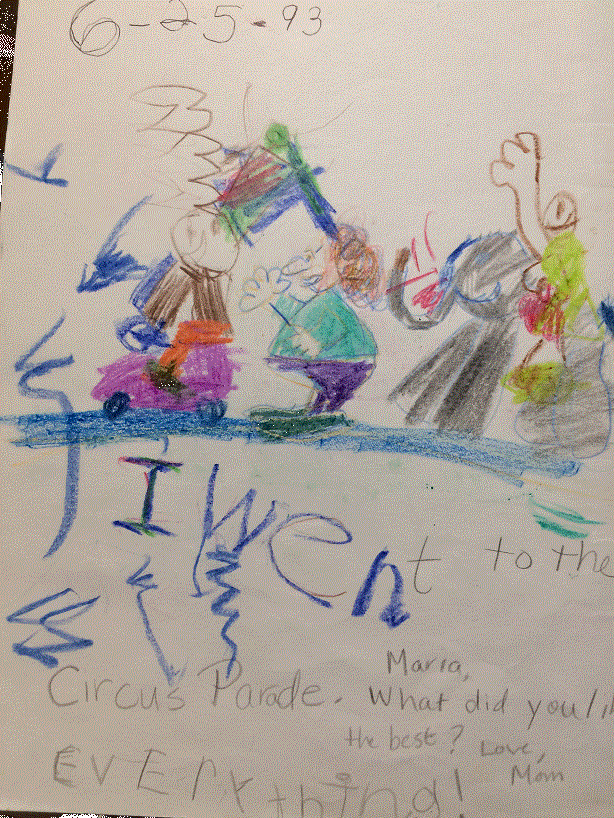 6-25-93
I went to the
Circus Parade.
Maria,
What did you li
the best?
Love,
Mom
EVErything!